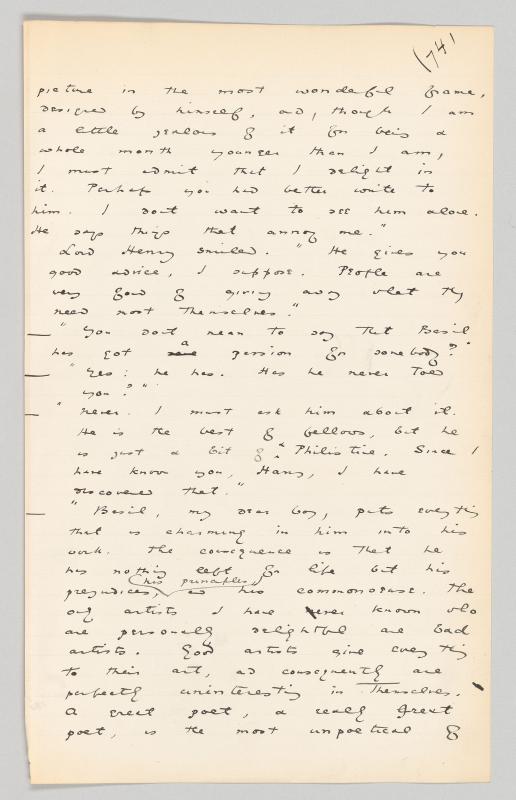 (74)
picture in the most wonderful frame,
designed by himself, and, though I am
a little jealous of it for being a
whole month younger than I am,
I must admit that I delight in
it. Perhaps you had better write to
him. I dont want to see him alone.
He says things that annoy me."
Lord Henry smiled. "He gives you
good advice, I suppose. People are
very fond of giving away what they
need most themselves."
"You dont mean to say that Basil
has got a passion for somebody?"
"Yes: he has. Has he never told
you?"
"Never. I must ask him about it.
He is the best of fellows, but he
is just a bit of a Philistine. Since I
have known you, Harry, I have
discovered that."
"Basil, my dear boy, puts everything
that is charming in him into his
work. The consequence is that he
has nothing left for life but his
prejudices, his principles, and his commonsense. The
only artists I have ever known who
are personally delightful are bad
artists. Good artists give everything
to their art, and consequently are
perfectly uninteresting in themselves.
A great poet, a really great
poet, is the most unpoetical of